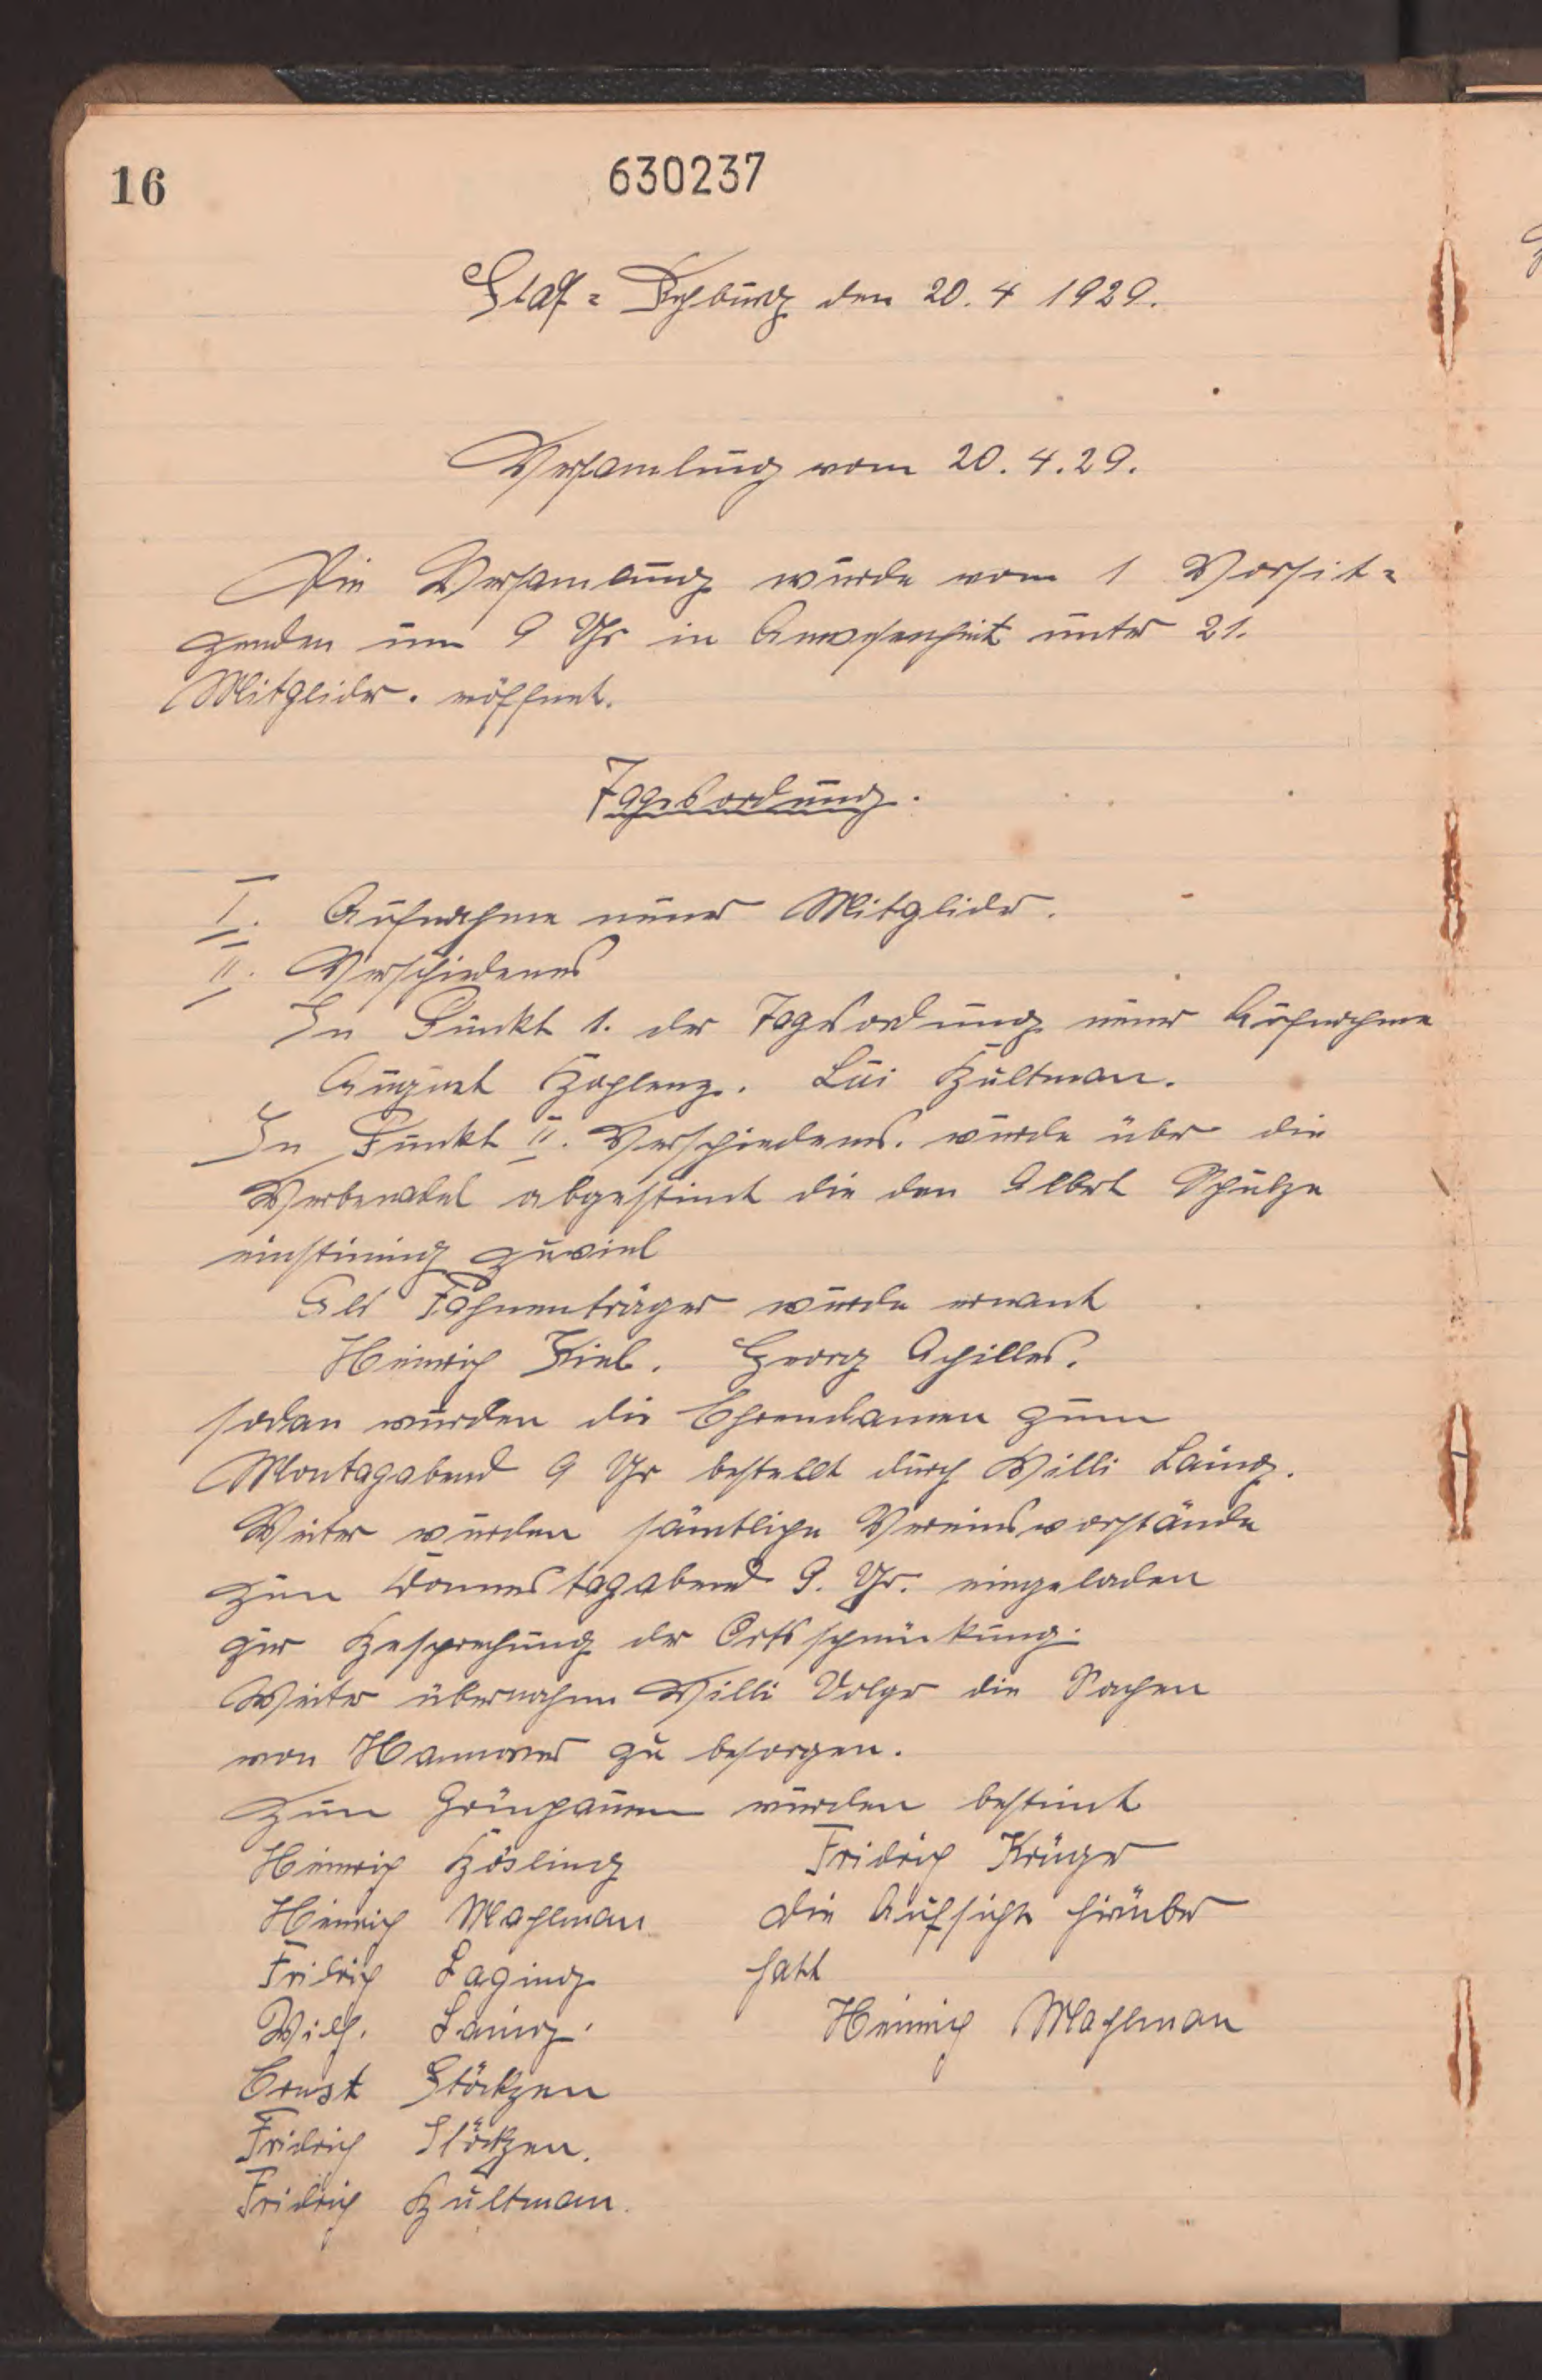 16
630237
Stadt-Rehburg den 20. 4 1929.
Versamlung vom 20. 4. 29.
Die Versamlung wurde vom 1 Vorsit=
zenden um 9 Uhr in Anwesenheit unter 21.
Mitglider. eröffnet.
Tagesordnung.
I. Aufnahme neuer Mitglider.
II. Verschiedenes
Zu Punkt 1. der Tagesordnung neuer Aufnahme
August Lui Bultman.
Zu Punkt II. Verschiedenes. wurde über die
abgestimt die den Albert Schulze
einstimig zuviel
Als Fahnenträger wurde ernant
Heinrich Kiel. Georg Achilles.
sodan wurden die Ehrendamen zum
Montagabend 9 Uhr bestellt durch Willi Lauing.
Weiter wurden sämtliche Vereinsvorstände
zum Donnerstagabend 9. Uhr. eingeladen
zur Besprechung der Ortsschmükung.
Weiter übernahm Willi Volger die Sachen
von Hannover zu besorgen.
Zum wurden bestimt
Heinrich Bösling
Heinrich Mahlman
Fridrich Laging
Wilh. Lauing.
Ernst Störkzen
Fridrich Störkzen.
Fridrich Bultman.
Fridrich Krüger
die Aufsicht hirüber
hatt
Heinrich Mahlman